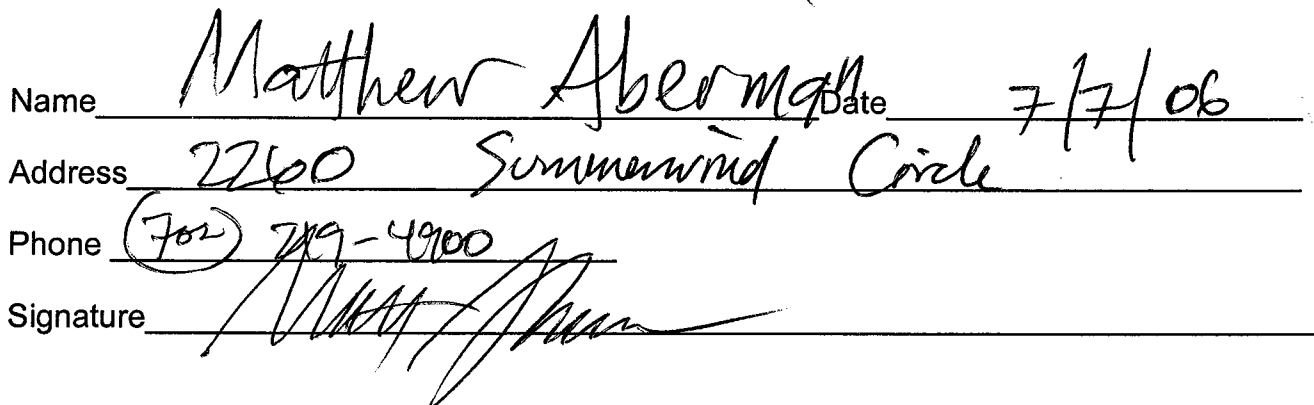 Name Matthew Aberman Date 7/7/06
Address 2260 Summerwind Circle
Phone (702) 219-4900
Signature